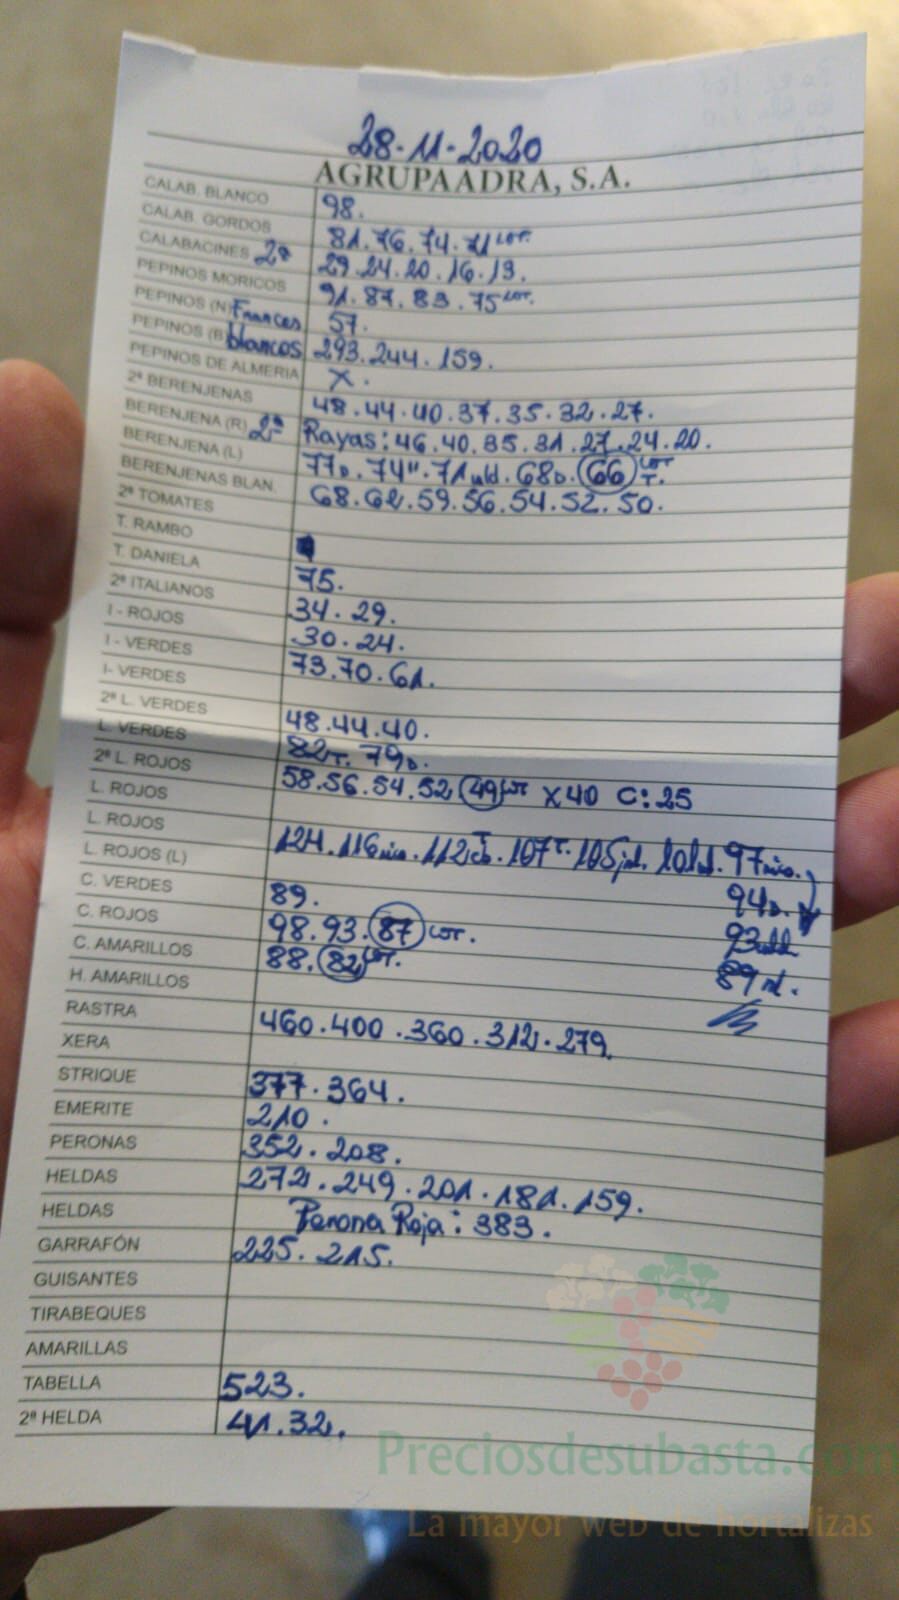 28-11-2020
AGRUPAADRA, S.A.
CALAB. BLANCO 98.
CALAB. GORDOS 81.76.74.71 LOT.
CALABACINES 2ª 29.24.20.16.13.
PEPINOS MORICOS 91.87.83.75 LOT.
PEPINOS (N) Frances 57.
PEPINOS (B) blancos 293.244.159.
PEPINOS DE ALMERIA X.
2ª BERENJENAS 48.44.40.37.35.32.27.
BERENJENA (R) 2ª Rayas: 46.40.35.31.27.24.20.
BERENJENA (L) 77D.74".71 .68D. 66 LOT T.
BERENJENAS BLAN. 68.62.59.56.54.52.50.
2ª TOMATES
T. RAMBO
T. DANIELA 75.
2ª ITALIANOS 34.29.
I - ROJOS 30.24.
I - VERDES 73.70.61.
I- VERDES
2ª L. VERDES 48.44.40.
L. VERDES 82T. 79D.
2ª L. ROJOS 58.56.54.52 49 LOT X40 C:25
L. ROJOS
L. ROJOS 121.116 .112 .107T.105 .101 .97
L. ROJOS (L) 94D.
C. VERDES 89. 93
C. ROJOS 98.93.87 LOT. 89
C. AMARILLOS 88.82 LOT.
H. AMARILLOS
RASTRA 460.400.360.312.279.
XERA
STRIQUE 377.364.
EMERITE 210.
PERONAS 352.208.
HELDAS 272.249.201.181.159.
HELDAS Perona Roja: 383.
GARRAFÓN 225.215.
GUISANTES
TIRABEQUES
AMARILLAS
TABELLA 523.
2ª HELDA 41.32.
Preciosdesubasta.com
La mayor web de hortalizas